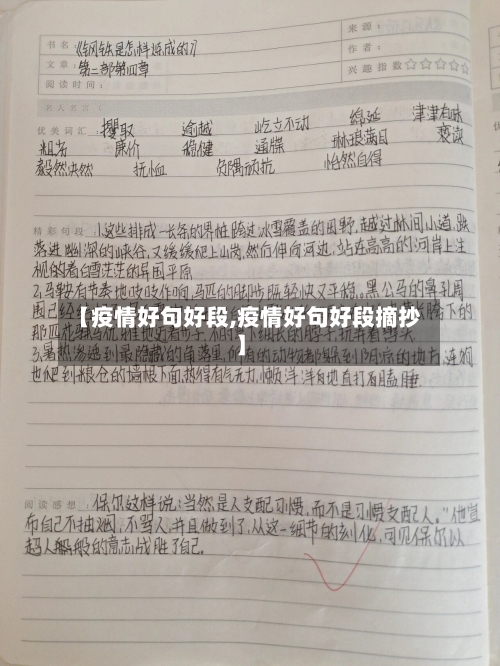 书名：《钢铁是怎样炼成的》
来源：
文章：第二部第四章
作者：
阅读时间：
兴趣指数☆☆☆☆☆
名人名言
优美词汇：攫取 逾越 屹立不动 绵延 津津有味
粗劣 廉价 稳健 通牒 琳琅满目
毅然决然 抚恤 负隅顽抗 怡然自得
精彩句段：1.这些排成一长年的界桩跨过冰雪覆盖的田野，越过林间小道，跌
落进幽深的峡谷，又缓缓爬上山岗，然后伸向河边，站在高高的河岸上
视的看白雪茫茫的异国平原
2.马鞍有节奏地吱吱作响，马匹的脚步既轻快又平稳。黑公马的鼻孔周
【疫情好句好段,疫情好句好段摘抄
】
3.暑热渗透到最隐藏的角落里，所有的动物都躲到阴凉的地方，连狗
也爬到粮仓的墙根下面，热得有气无力，懒洋洋地直打瞌睡
阅读感想：保尔这样说：当然是人支配习惯，而不是习惯支配人。”他宣
布自己不抽烟，不骂人，并且做到了，从这一细节的刻化，可见保尔以
超人般的意志战胜了自己。